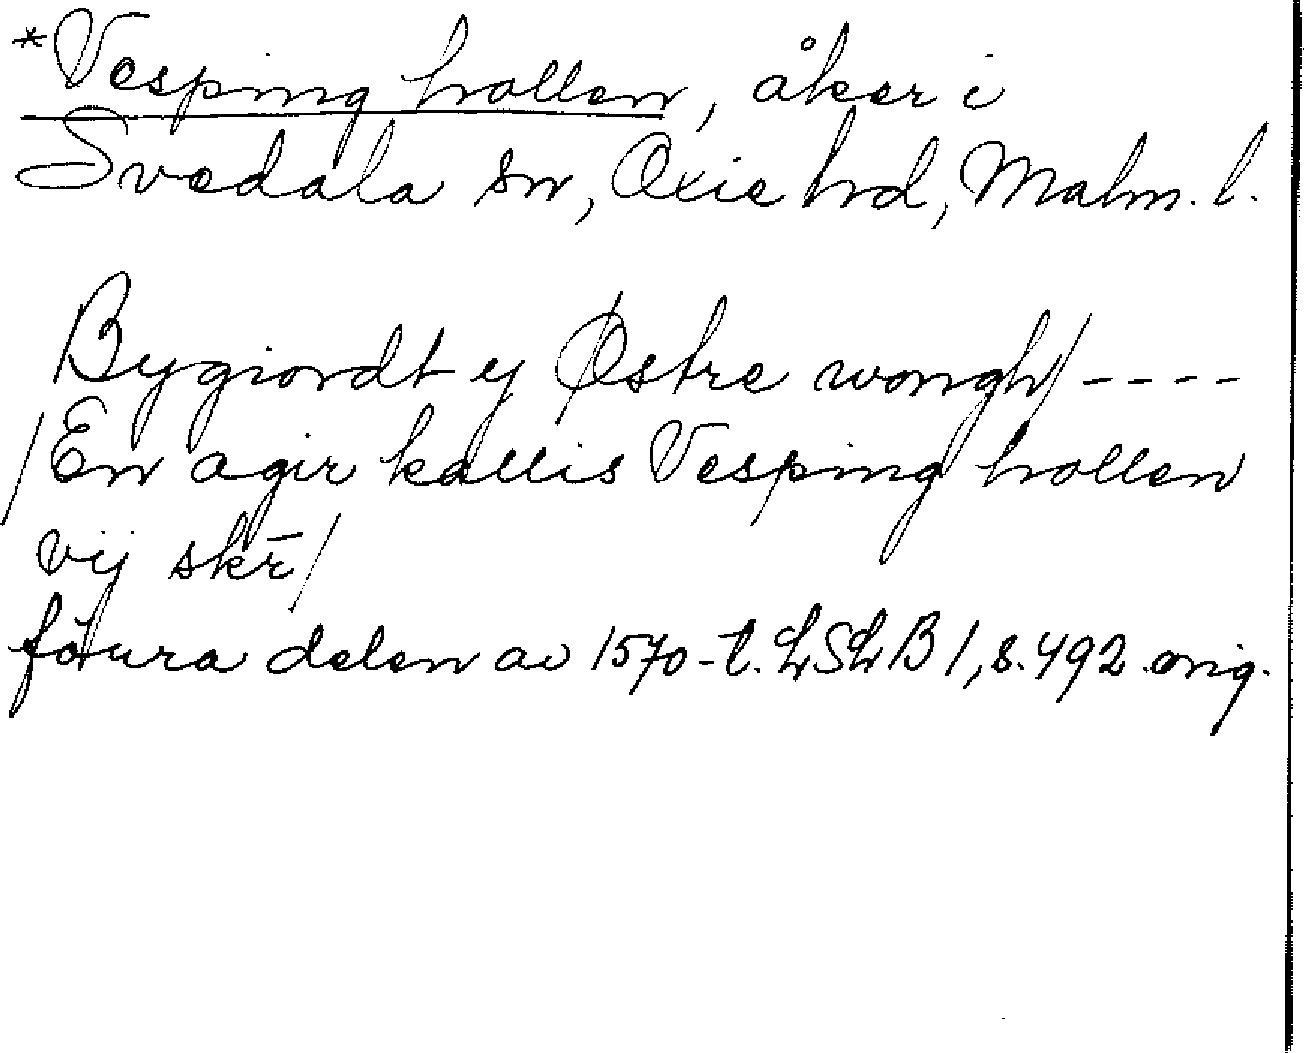 *Vesping hollen, åker i
Svedala sn, Oxie hd, Malm. l.
Bygiordt y Østre wongh/ ----
/En agir kallis Vesping hollen
vij skr̄/
förra delen av 1570-t. LSLB 1, s. 492 orig.